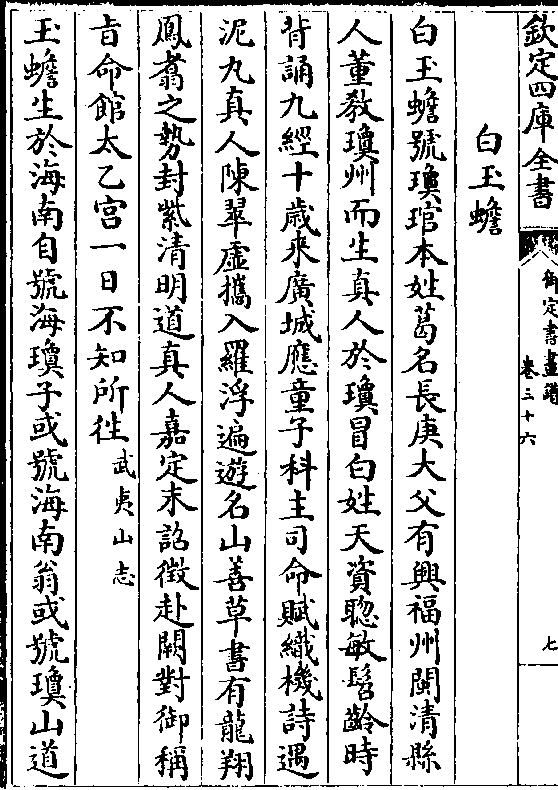 欽定四庫全書
御定書畫譜
卷三十六
七
白玉蟾
白玉蟾號瓊琯本姓葛名長庚大父有興福州閩清縣
人董教瓊州而生真人於瓊冒白姓天資聦敏髫齡時
背誦九經十歳来廣城應童子科主司命賦織機詩遇
泥丸真人陳翠虛攜入羅浮遍遊名山善草書有龍翔
鳳翥之勢封紫清明道真人嘉定末詔徴赴闕對御稱
旨命館太乙宮一日不知所徃武夷山志
玉蟾生於海南自號海瓊子或號海南翁或號瓊山道